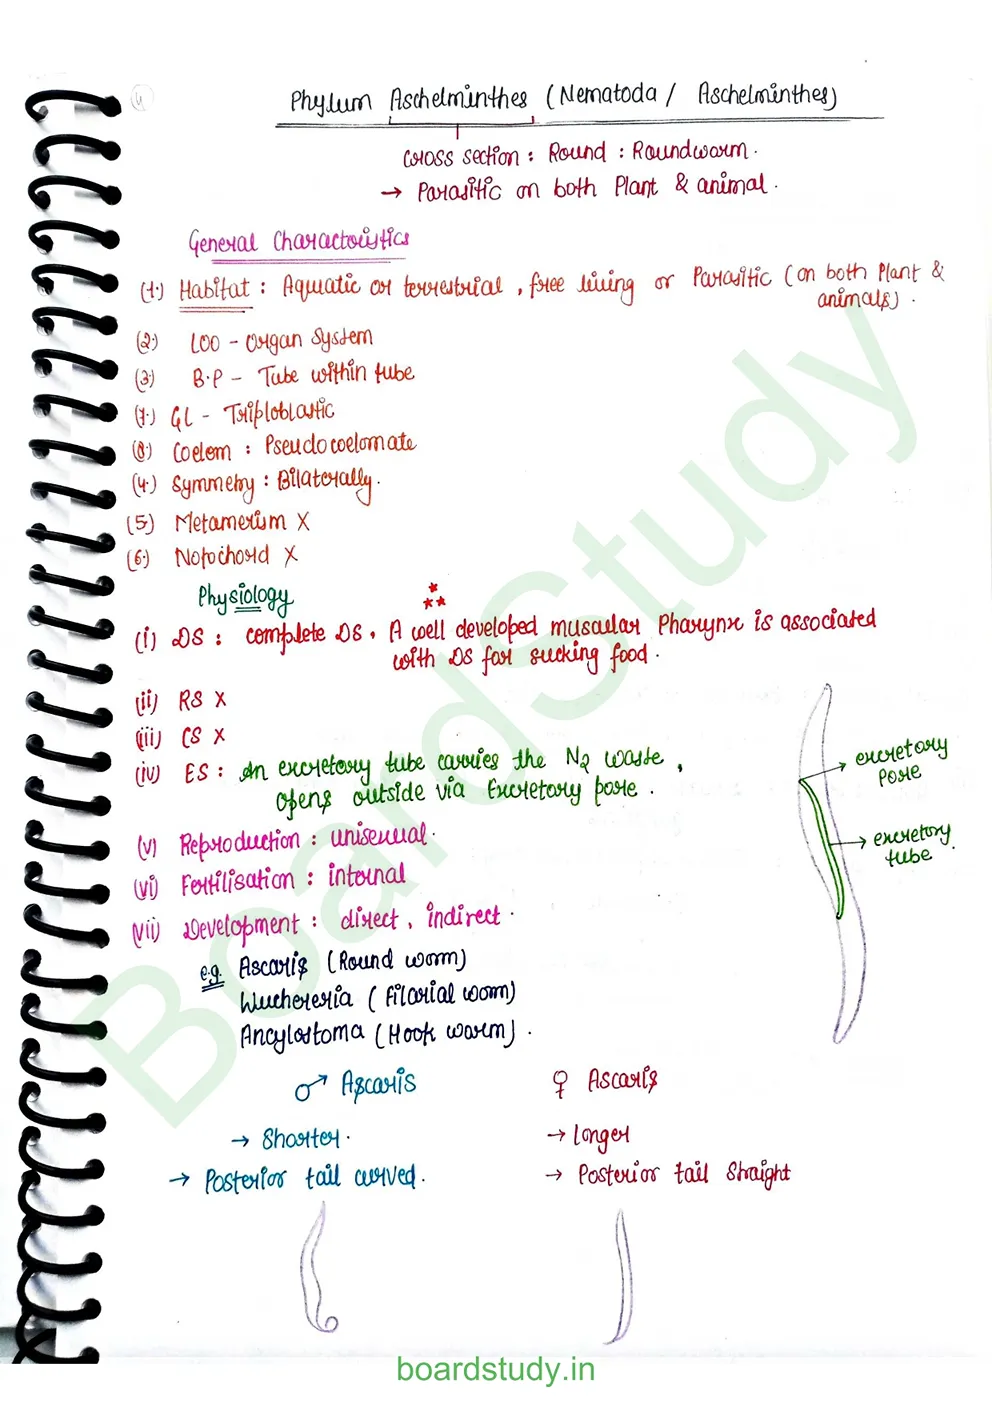 4
Phylum Aschelminthes (Nematoda / Aschelminthes)
cross section : Round : Roundworm.
→ Parasitic on both Plant & animal.
General Characteristics
(1.) Habitat : Aquatic or terrestrial, free living or Parasitic (on both Plant &
animals).
(2.) LOO - Organ System
(3.) B.P - Tube within tube
(7.) GL - Triploblastic
(8.) Coelom : Pseudocoelomate
(4.) Symmetry : Bilaterally.
(5.) Metamerism X
(6.) Notochord X
Physiology
(i) DS : complete DS, A well developed muscular Pharynx is associated
with DS for sucking food.
(ii) RS X
(iii) CS X
(iv) ES : An excretory tube carries the N2 waste,
opens outside via Excretory pore.
excretory
pore
excretory
tube.
(v) Reproduction : unisexual.
(vi) Fertilisation : internal
(vii) Development : direct, indirect.
e.g. Ascaris (Round worm)
Wuchereria (Filarial worm)
Ancylostoma (Hook worm).
♂ Ascaris
→ Shorter.
→ Posterior tail curved.
♀ Ascaris
→ longer
→ Posterior tail straight
BoardStudy
boardstudy.in